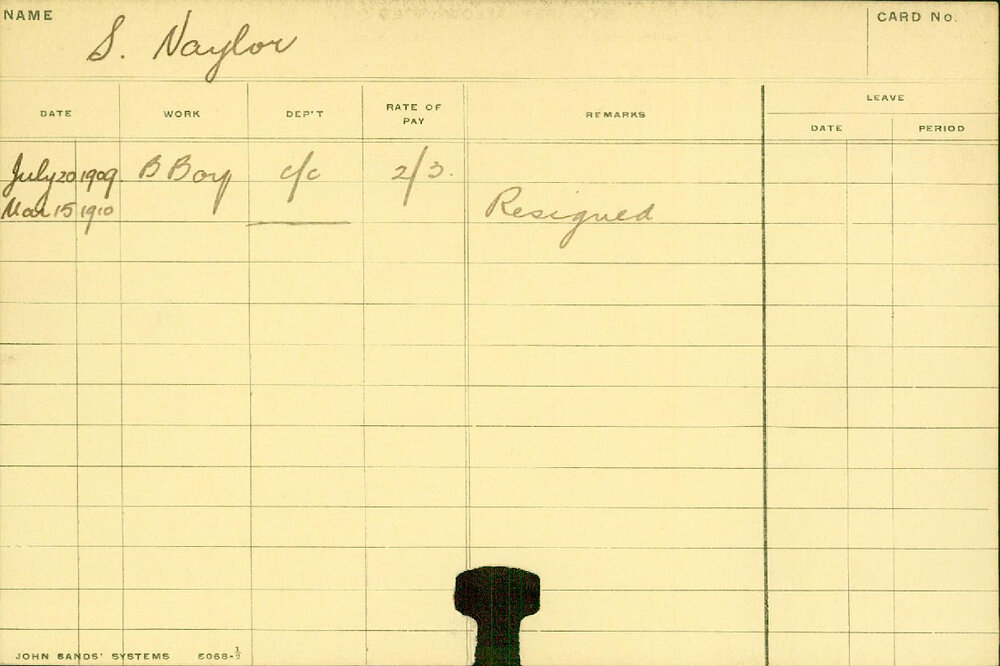 NAME S. Naylor CARD No.
DATE WORK DEP'T RATE OF PAY REMARKS LEAVE
DATE PERIOD
July 20 1909 B Boy c/c 2/3.
Mar 15 1910 Resigned
JOHN SANDS' SYSTEMS 5068-½